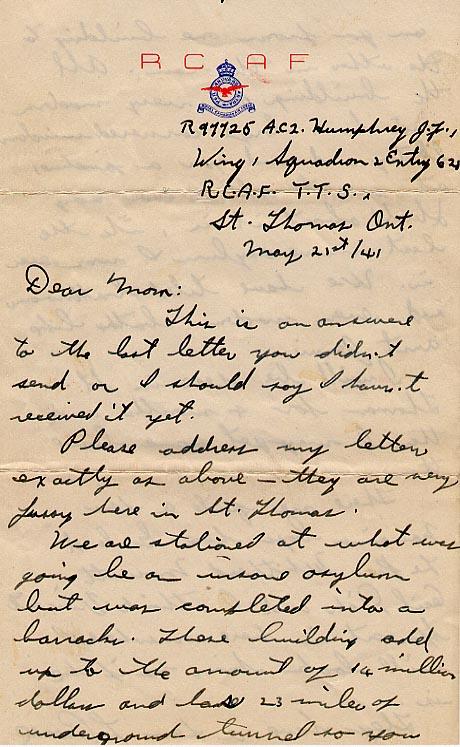 R C A F
R97725 AC2. Humphrey J.F.,
Wing 1 Squadron 2 Entry 62
R.C.A.F. T.T.S.,
St. Thomas Ont.
May 21st/41
Dear Mom:
This is an answere
to the last letter you didn't
send or I should say I havn't
received it yet.
Please address my letters
exactly as above - they are very
fussy here in St. Thomas.
We are stationed at what was
going be an insane asylum
but was completed into a
barracks. These buildings add
up to the amount of 14 million
dollars and has 23 miles of
underground tunnel so you